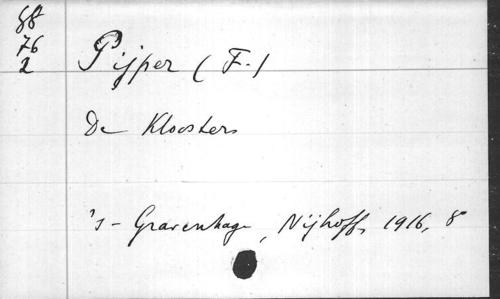 88
76
2
Pijper (F.)
De Kloosters
's-Gravenhage, Nijhoff, 1916, 8°